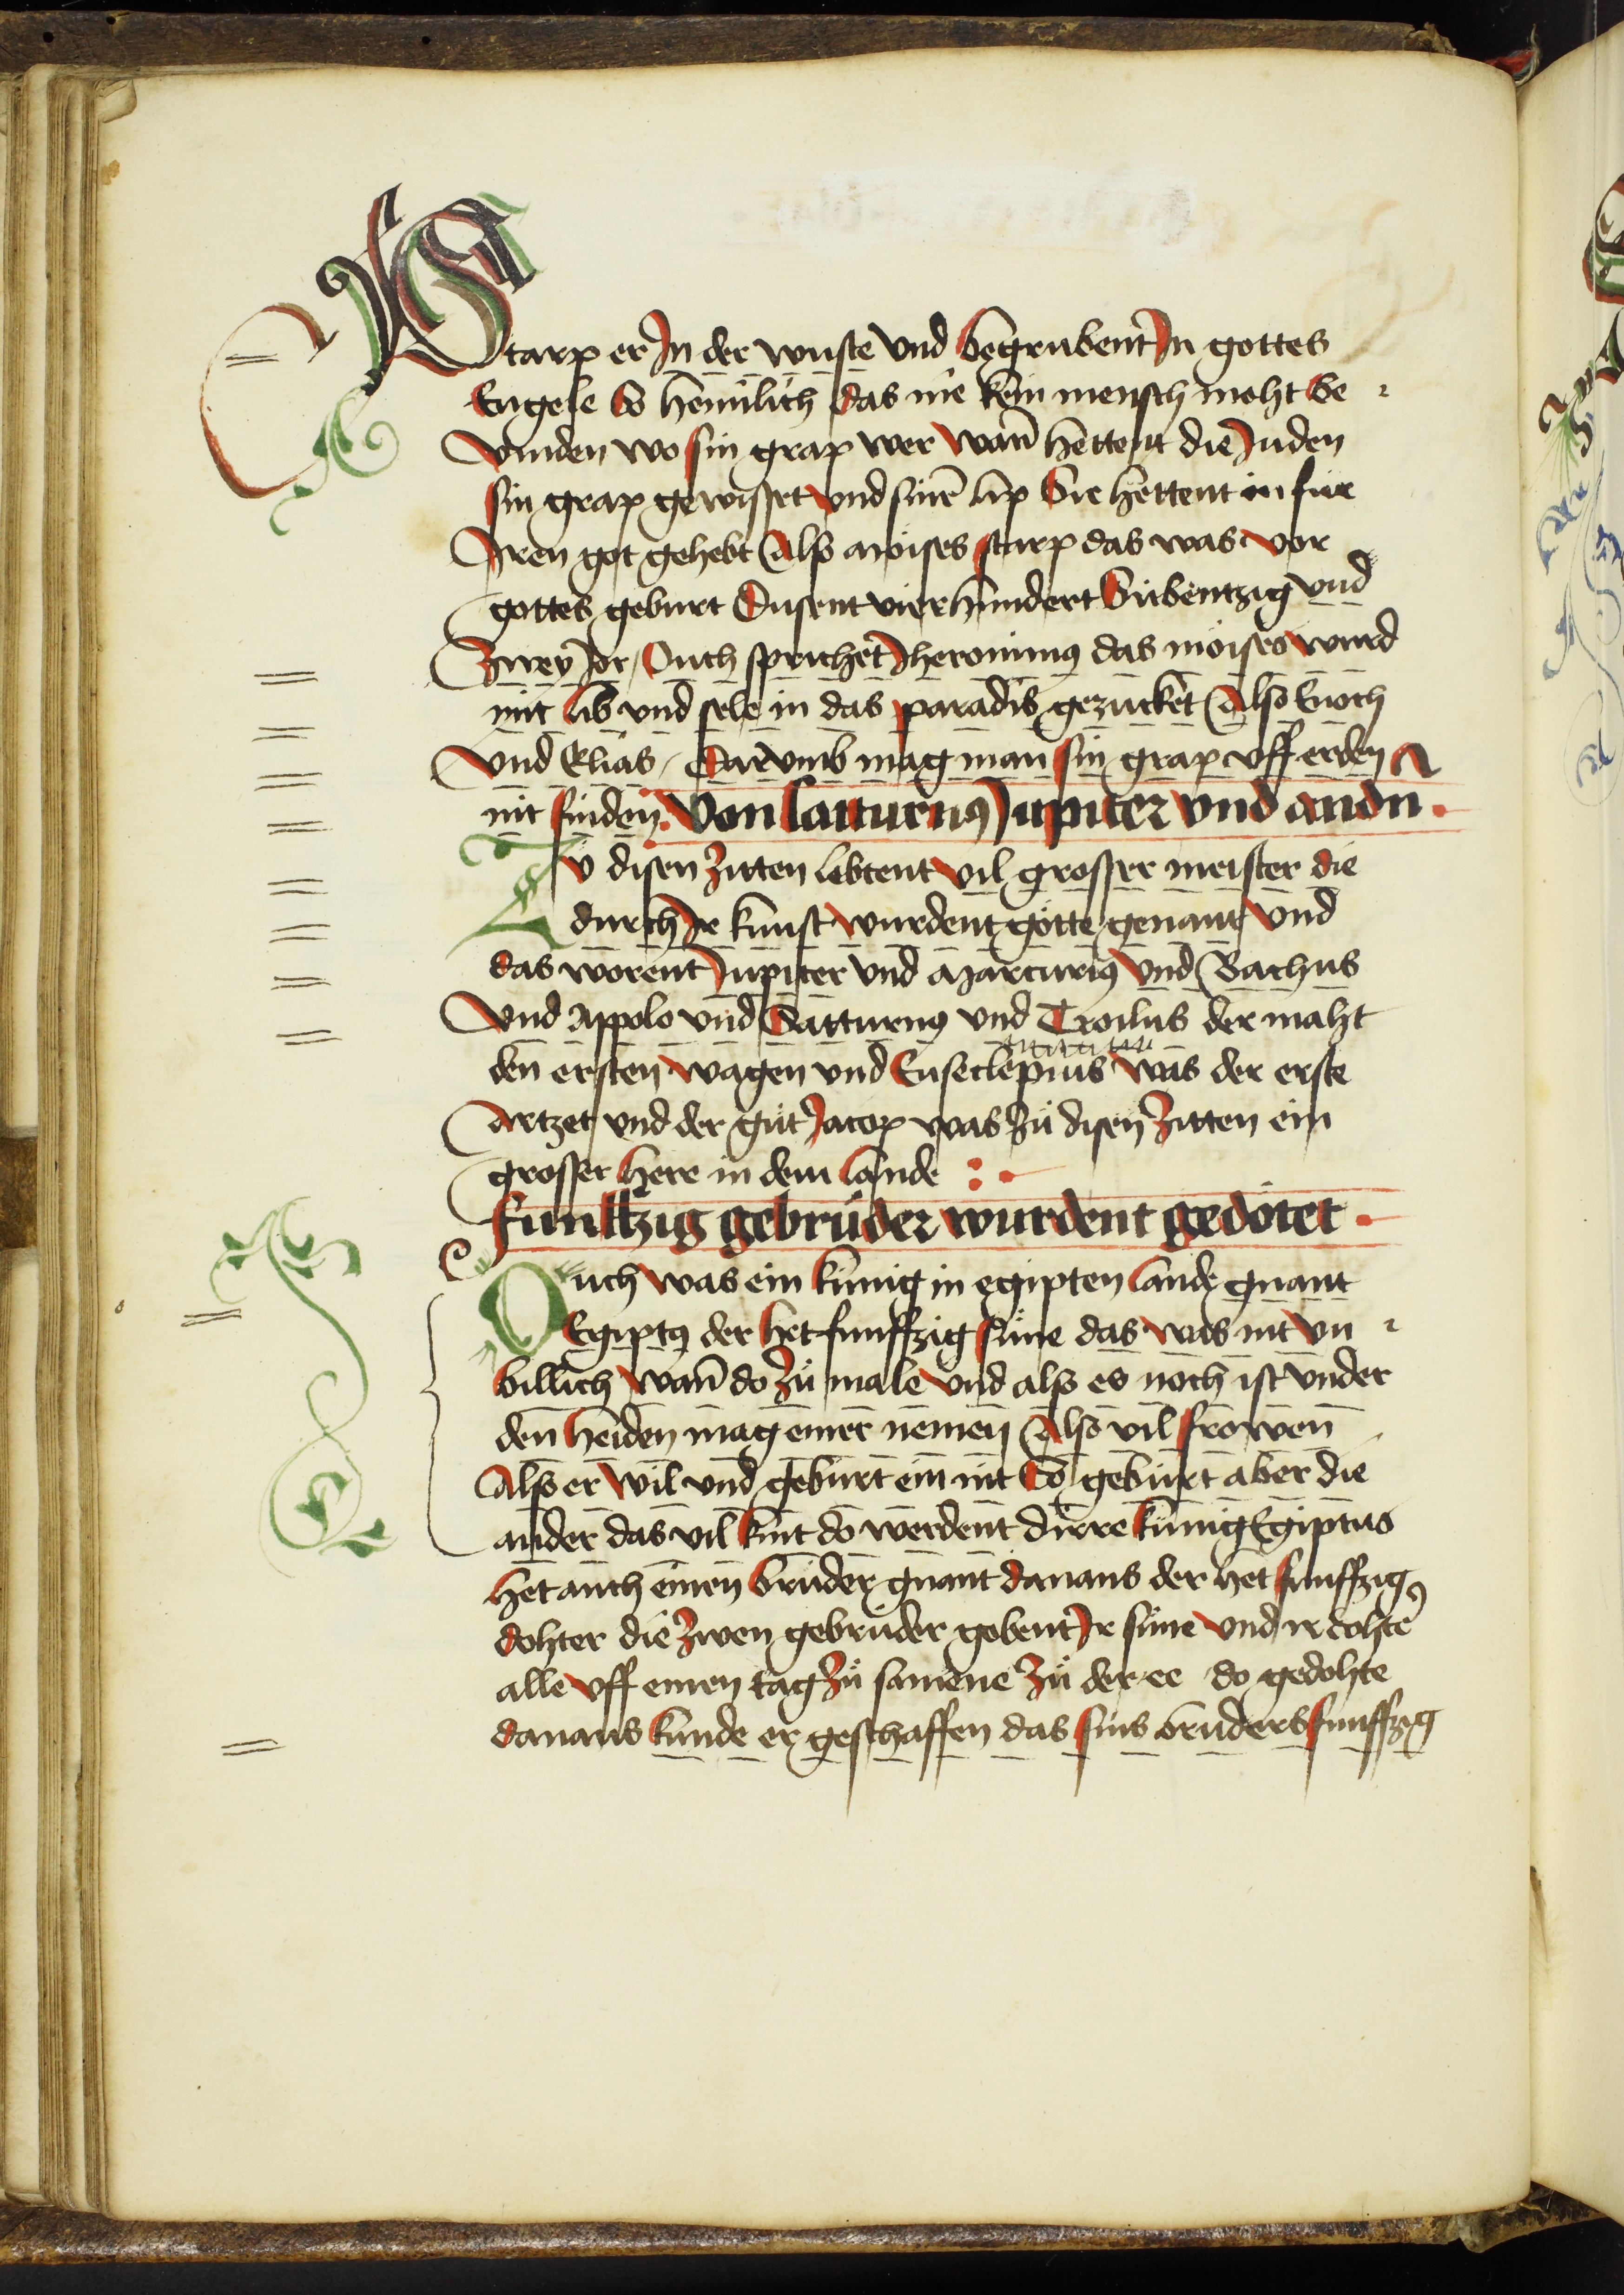 Starp er In der wuste vnd begrubent In gottes
Engele so heimlich das nie kein mensch moht be
vinden wo sin grap wer wann hettent die Juden
sin grap gewisset vnd sinen lip Sie hettent in für
Iren got gehebt Alß moises starp das was vor
gottes geburt Dusent vierhundert Sibentzig vnd
Zwey Jor / Ouch sprichet Jheronimus das moises wurd
mit lib vnd sele in das paradis gezucket Also Enoch
vnd Elias / Darvmb mag man sin grap vff erden
nit finden. Von Satturnus Jupiter vnd andn
Zů disen zitten lebtent vil grosser meister die
durch Ir kunst wurdent götte genant vnd
das worent Jupiter vnd Marcurius vnd Bachus
vnd Appolo vnd Satturnus vnd Troilus der maht
den ersten wagen vnd Enseclepius was der erste
Artzet vnd der gůt Jacop was zů disen zitten ein
grosser here in dem lande
funfftzig gebrüder wurdent gedötet
Ouch was ein künig in egipten lande gnant
Egiptus der het funffzig süne das was nit vn
billich wann do zů male vnd alß es noch ist vnder
den heiden mag einer nemen Also vil frowen
Alß er wil vnd geburt ein nit So geburt aber die
ander das vil kint do werdent dirre künig Egiptus
het auch einen bruder gnant danaus der het funffzig
dohter die zwen gebruder gobent Ir süne vnd ir dohter
alle vff einen tag zů samene zů der ee do gedohte
danaus kunde er geschaffen das sins bruders funffzig